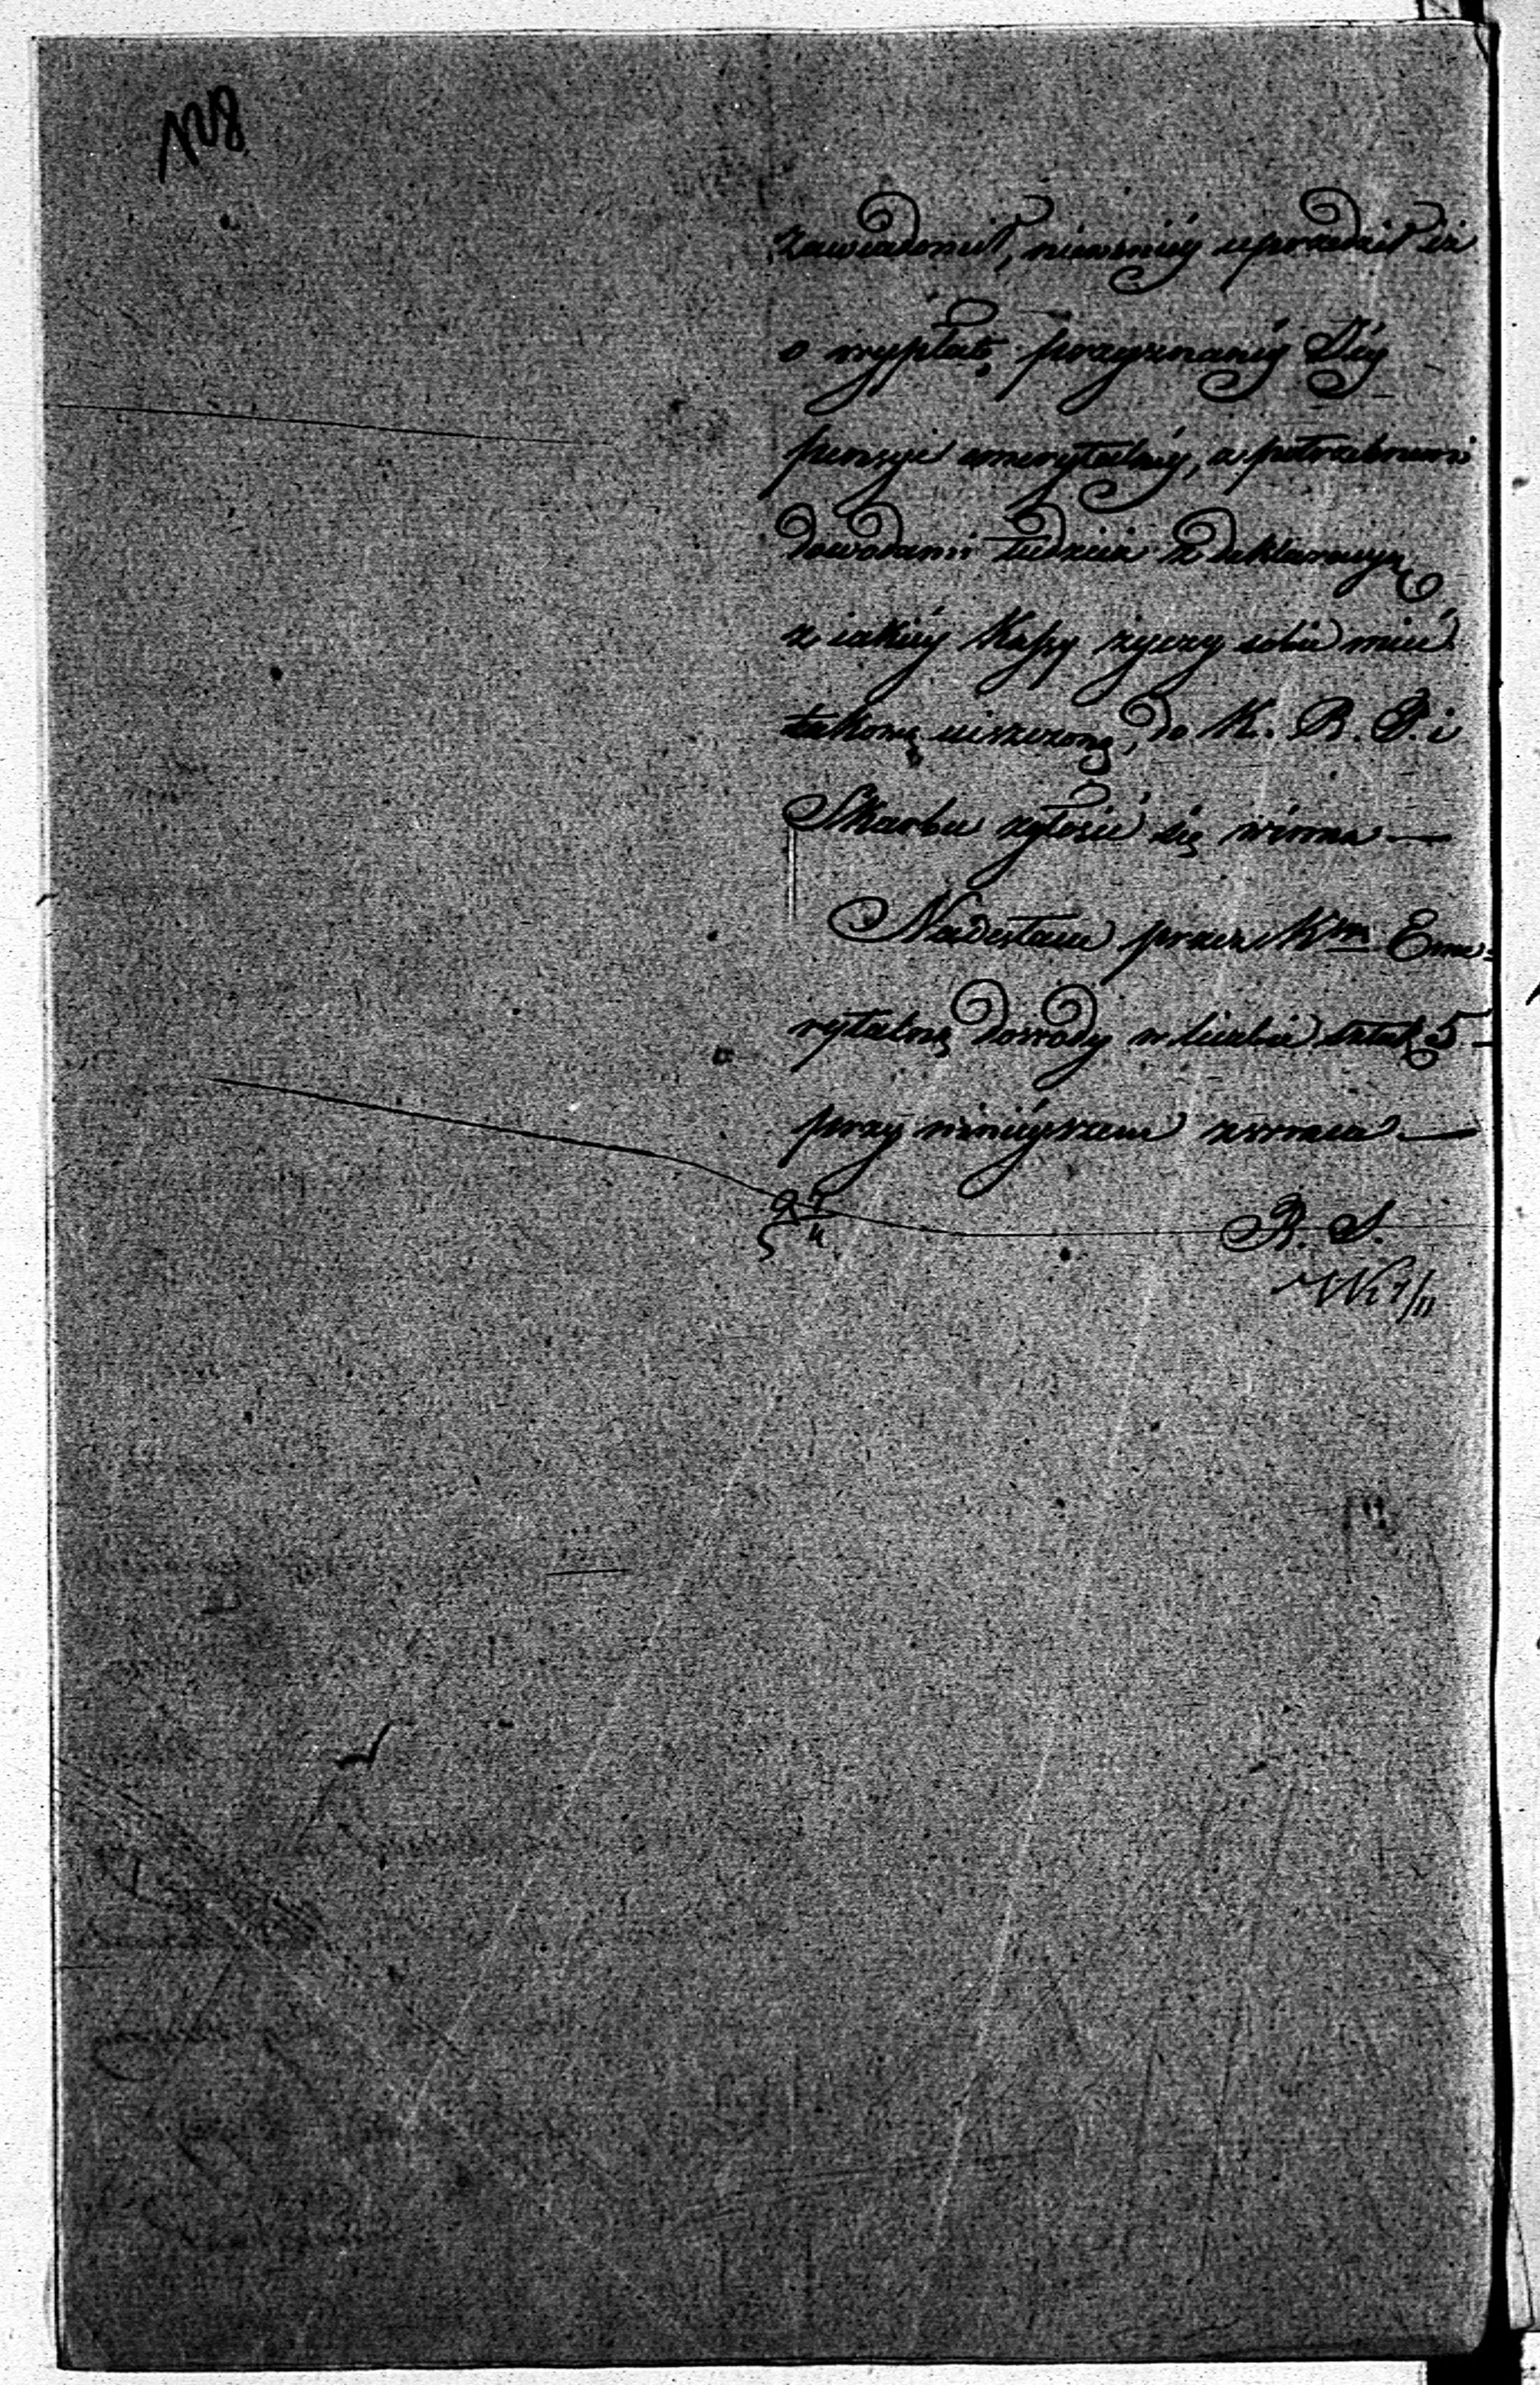 128
zawiadomił, niemniéy uprzedził iż
o wypłatę przyznanéy Jéy
pensyi emerytalnéy, z potrzebnemi
dowodami tudzież z deklaracyą
z iakiéy Kassy życzy sobie mieć
takową uiszczoną, do K. R. P. i
Skarbu zgłosić się winna —
Nadesłane przez K<sup>m</sup> Eme-
rytalną dowody w liczbie sztuk 5 —
przy niniéyszem zwraca —
R. S.